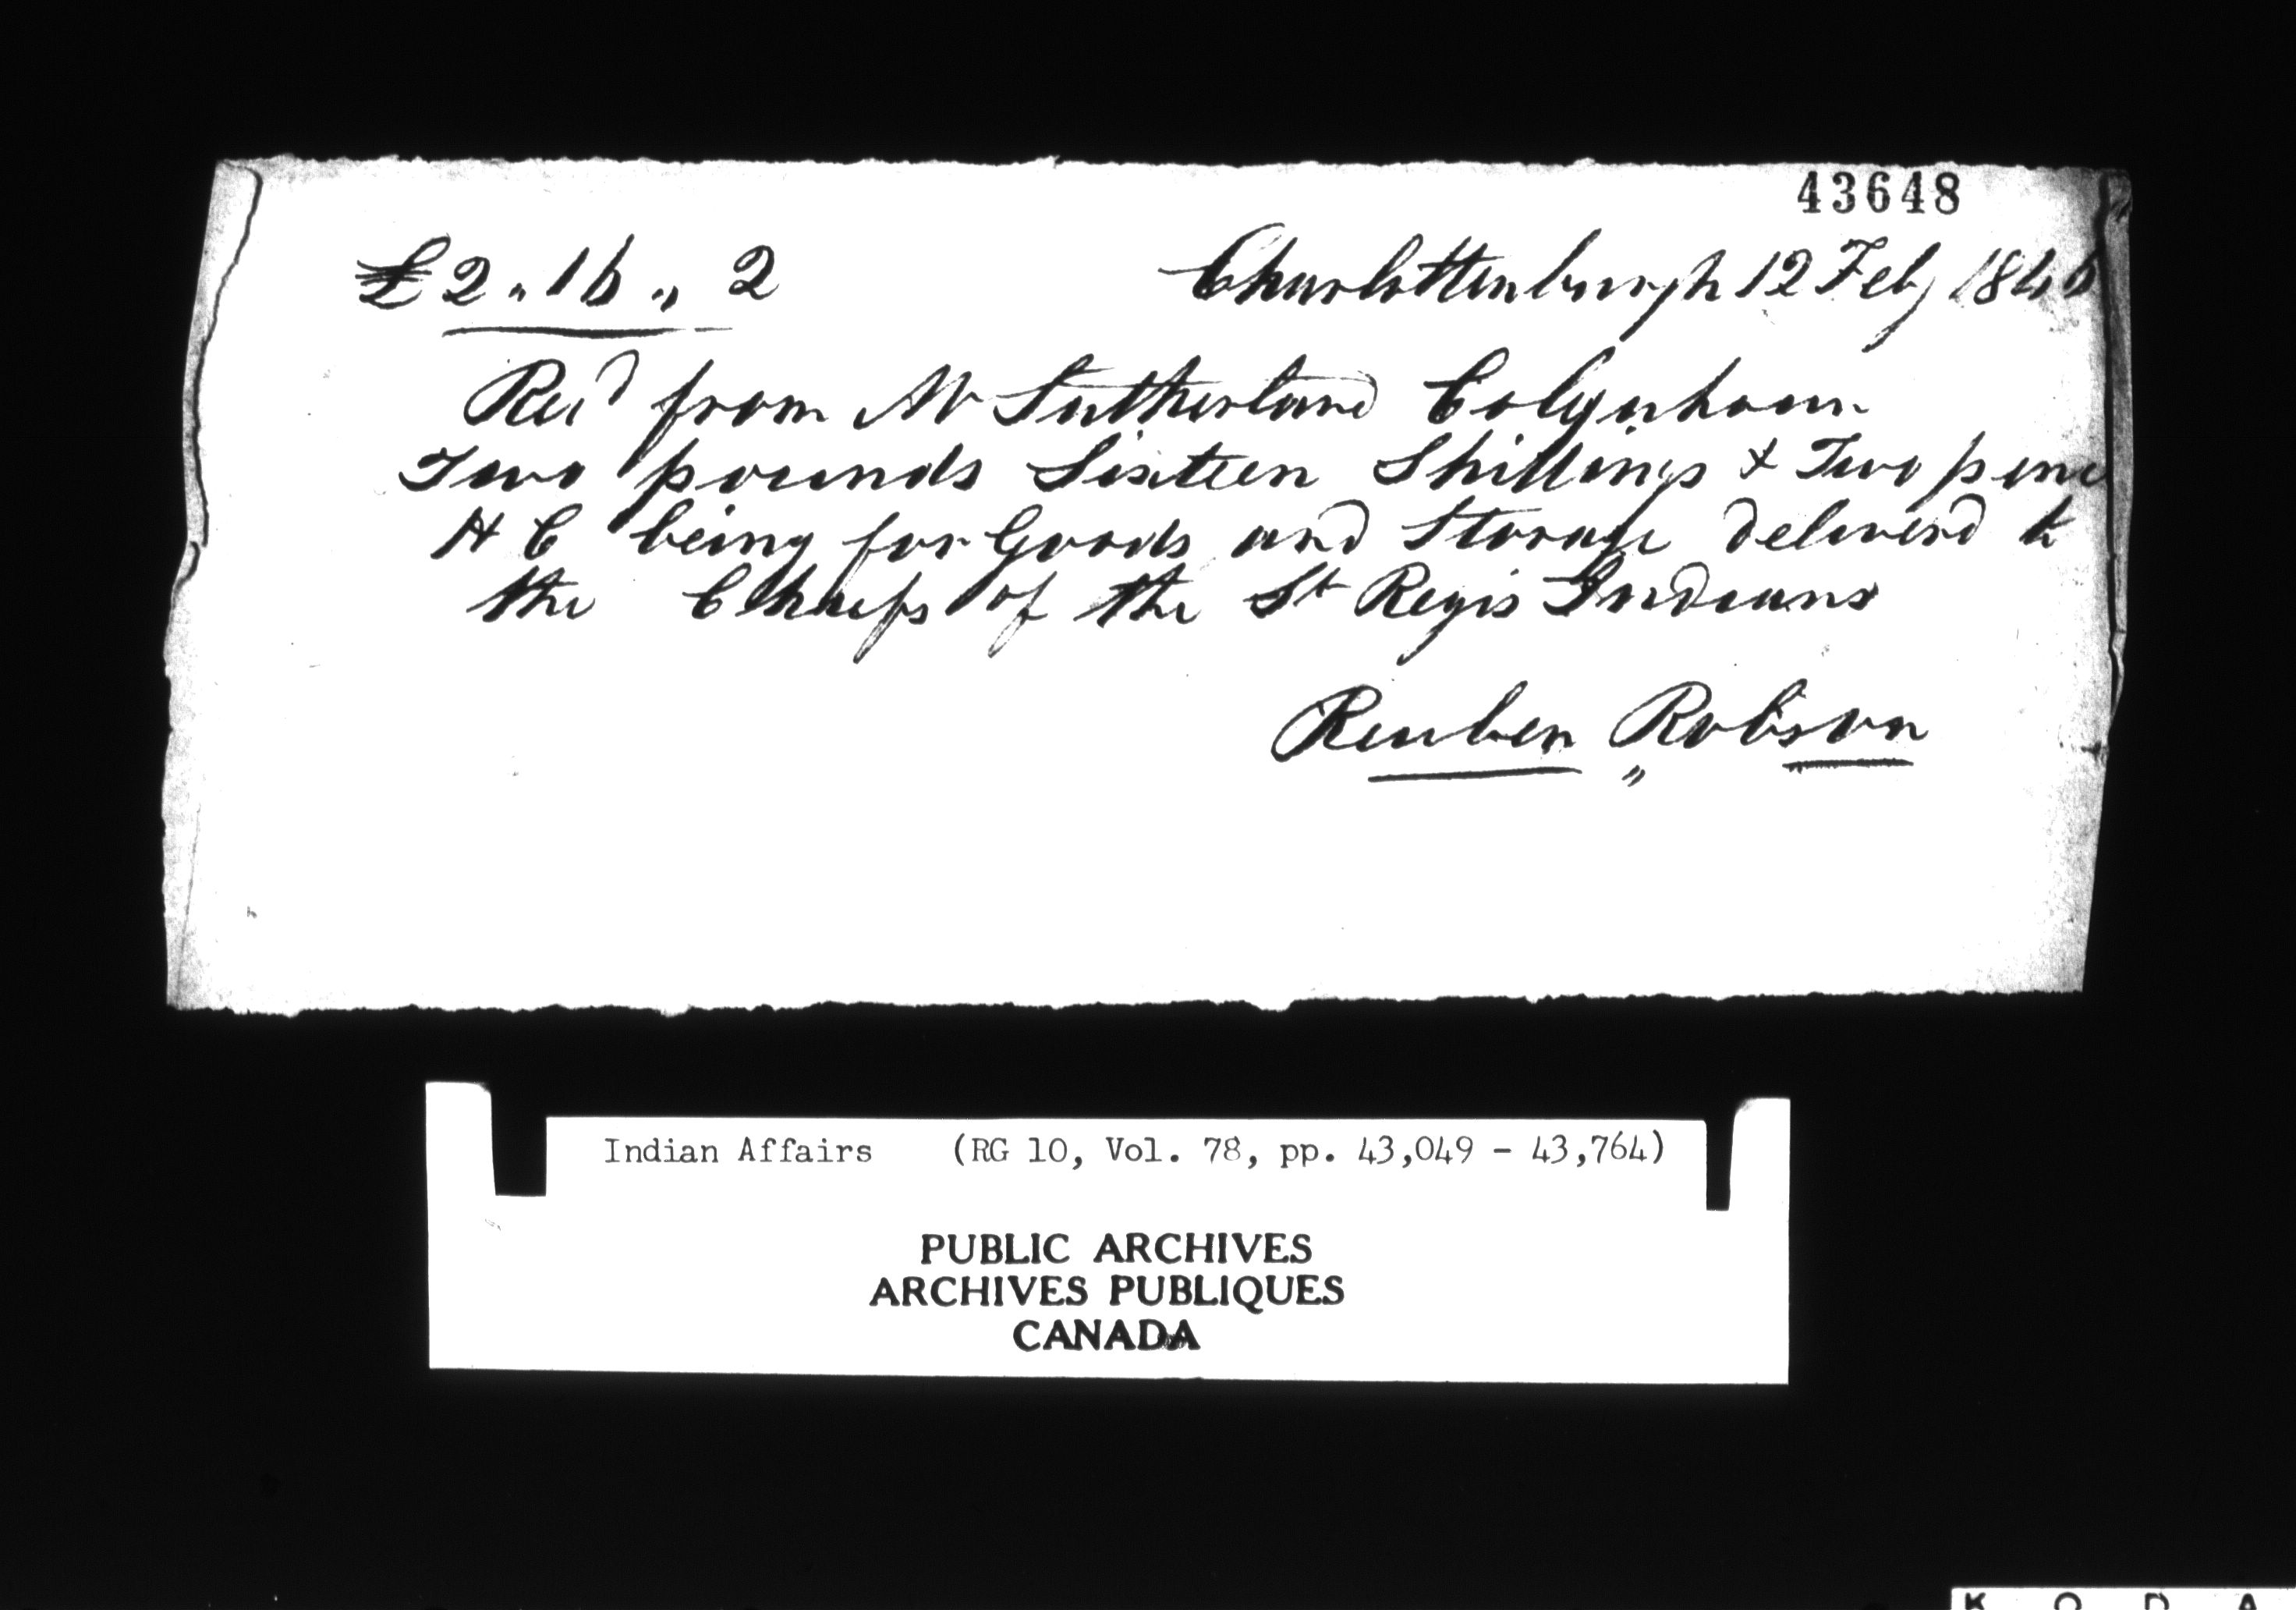 43648
£2 „ 16 „ 2 Charlottenburgh 12 Feby 1846
Recd from Mr Sutherland Colquhoun
Two pounds Sixteen Shillings & Two penc
H C being for Goods and Storage deliverd to
the Chiefs of the St Regis Indians
Reuben Robson
Indian Affairs (RG 10, Vol. 78, pp. 43,049 - 43,764)
PUBLIC ARCHIVES
ARCHIVES PUBLIQUES
CANADA
K O D A